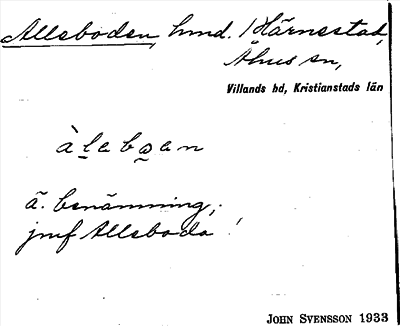 Allsboden, hmd. Härnestad,
Åhus sn,
Villands hd, Kristianstads län
àlebøen
ä. benämning,
jmf Allsboda!
JOHN SVENSSON 1933